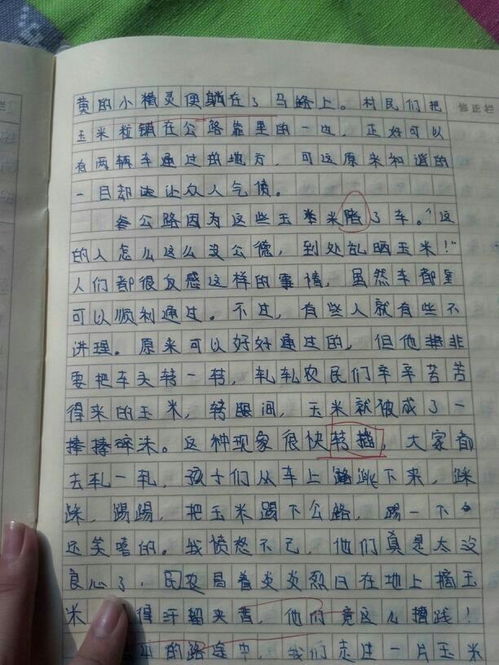 黄的小精灵便躺在了马路上。村民们把
玉米粒铺在公路靠里的一边，正好可以
有两辆车通过的地方，可这原来和谐的
一目却让众人气愤。
公路因为这些玉米堵了车。“这
的人怎么这么没公德，到处乱晒玉米！”
人们都很反感这样的事情，虽然车都是
可以顺利通过。不过，有些人就有些不
讲理。原来可以好好通过的，但他非
要把车头转一转，轧轧农民们辛辛苦苦
得来的玉米，转眼间，玉米就被成了一
捧捧碎沫。这种现象很快转播，大家都
去轧一轧，孩子们从车上跳下来，踩
踩，踢踢，把玉米踢下公路，踢一下
还笑嘻的。我愤怒不已，他们真是太没
良心了，民农冒着炎炎烈日在地上摘玉
米 得汗留夹背，他们竟这么糟践！
的路途中，我们走过一片玉米
修正栏